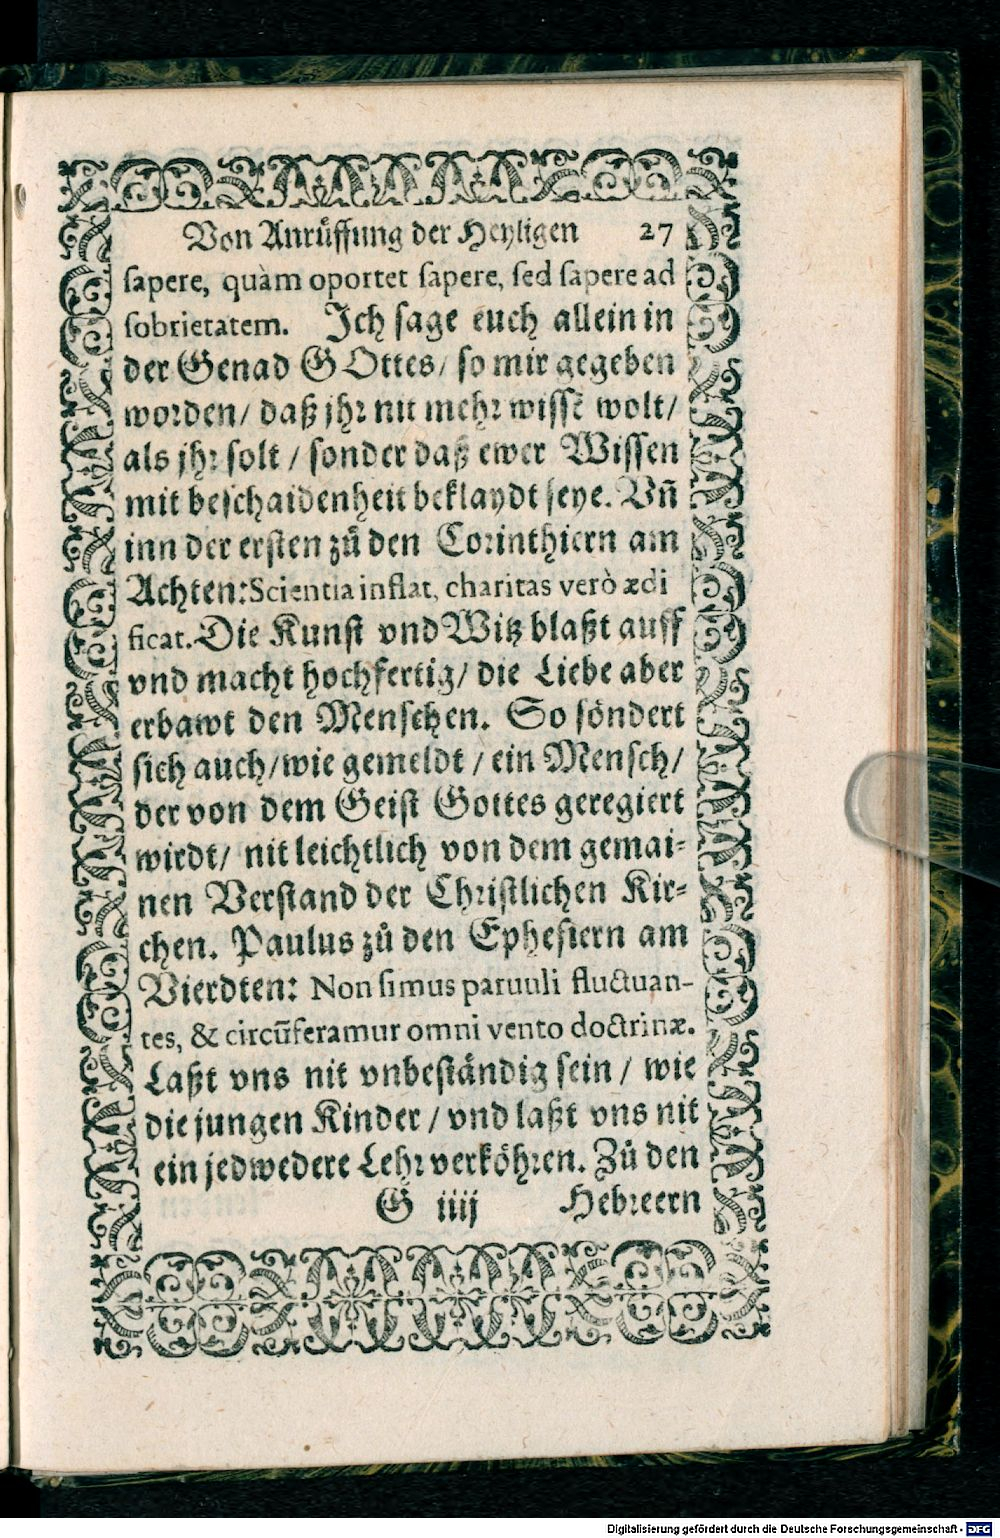 Von Anrůffung der Heyligen 27
sapere, quàm oportet sapere, sed sapere ad
sobrietatem. Ich sage euch allein in
der Genad GOttes/ so mir gegeben
worden/ daß jhr nit mehr wissẽ wolt/
als jhr solt / sonder daß ewer Wissen
mit beschaidenheit beklaydt seye. Vñ
inn der ersten zů den Corinthiern am
Achten: Scientia inflat, charitas verò ædi
ficat. Die Kunst vnd Witz blaßt auff
vnd macht hochfertig/ die Liebe aber
erbawt den Menschen. So söndert
sich auch/wie gemeldt / ein Mensch/
der von dem Geist Gottes geregiert
wirdt/ nit leichtlich von dem gemai-
nen Verstand der Christlichen Kir-
chen. Paulus zů den Ephesiern am
Vierdten: Non simus paruuli fluctuan-
tes, & circũferamur omni vento doctrinæ.
Laßt vns nit vnbeständig sein / wie
die jungen Kinder / vnd laßt vns nit
ein jedwedere Lehr verköhren. Zů den
G iiij Hebreern
Digitalisierung gefördert durch die Deutsche Forschungsgemeinschaft - DFG